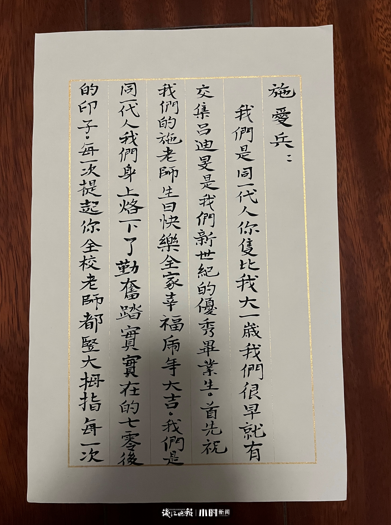 施愛兵：
我們是同一代人你隻比我大一歲我們很早就有
交集呂迪旻是我們新世紀的優秀畢業生。首先祝
我們的施老師生日快樂全家幸福虎年大吉。我們是
同一代人我們身上烙下了勤奮踏實實在的七零後
的印子。每一次提起你全校老師都豎大拇指每一次
錢江晚報 小時新聞